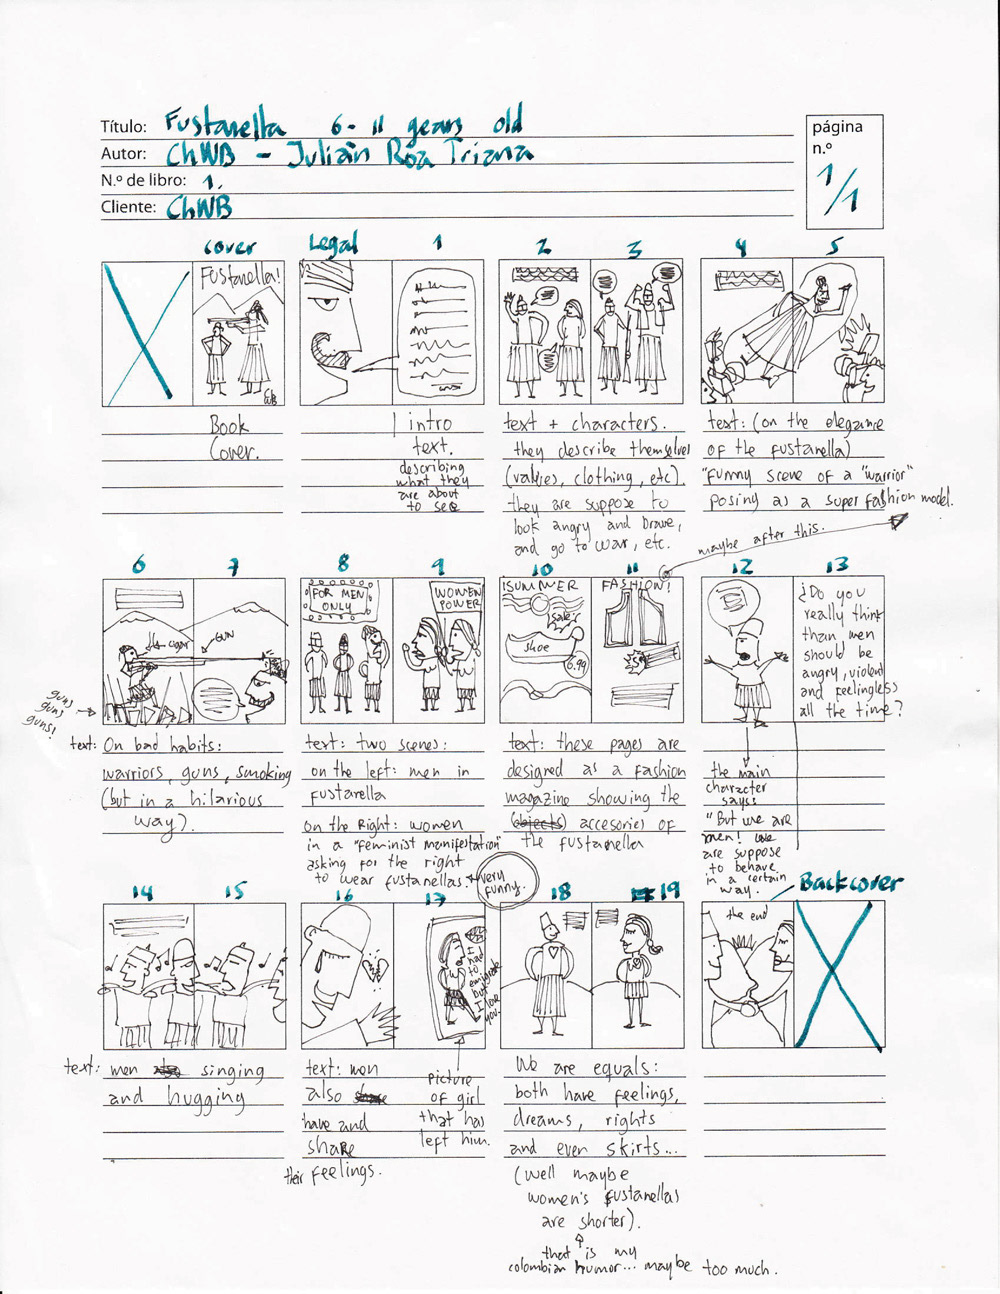 Título: Fustanella 6-11 years old
Autor: ChWB - Julián Roa Triana
N.º de libro: 1.
Cliente: ChWB
página
n.º
1/1
cover
Legal
1
2
3
4
5
Fustanella!
ChWB
Book
Cover.
intro
text.
describing
what they
are about
to see
text + characters.
they describe themselves
(values, clothing, etc)
they are suppose to
look angry and brave,
and go to war, etc.
text: (on the elegance
of the fustanella)
"Funny scene of a "warrior"
posing as a super fashion model.
maybe after this.
6
7
8
9
10
11
12
13
cigar
GUN
FOR MEN
ONLY
WOMEN
POWER
¡SUMMER
FASHION!
Sale!
shoe
6.99
¿Do you
really think
than men
should be
angry, violent
and feelingless
all the time?
guns
guns
guns!
text: On bad habits:
warriors, guns, smoking
(but in a hilarious
way).
text: two scenes:
on the left: men in
fustanella
on the Right: women
in a "feminist manifestation"
asking for the right
to wear fustanellas.
very
funny.
text: these pages are
designed as a fashion
magazine showing the
(objects) accesories of
the fustanella
the main
character
says:
"But we are
men! we
are suppose
to behave
in a certain
way.
14
15
16
17
18
19
Backcover
I had
to
emigrate
but
I love
you.
the end
text: men singing
and hugging
text: men
also
have and
share
their feelings.
picture
of girl
that has
left him.
We are equals:
both have feelings,
dreams, rights
and even skirts...
(well maybe
women's fustanellas
are shorter).
that is my
colombian humor... maybe too much.